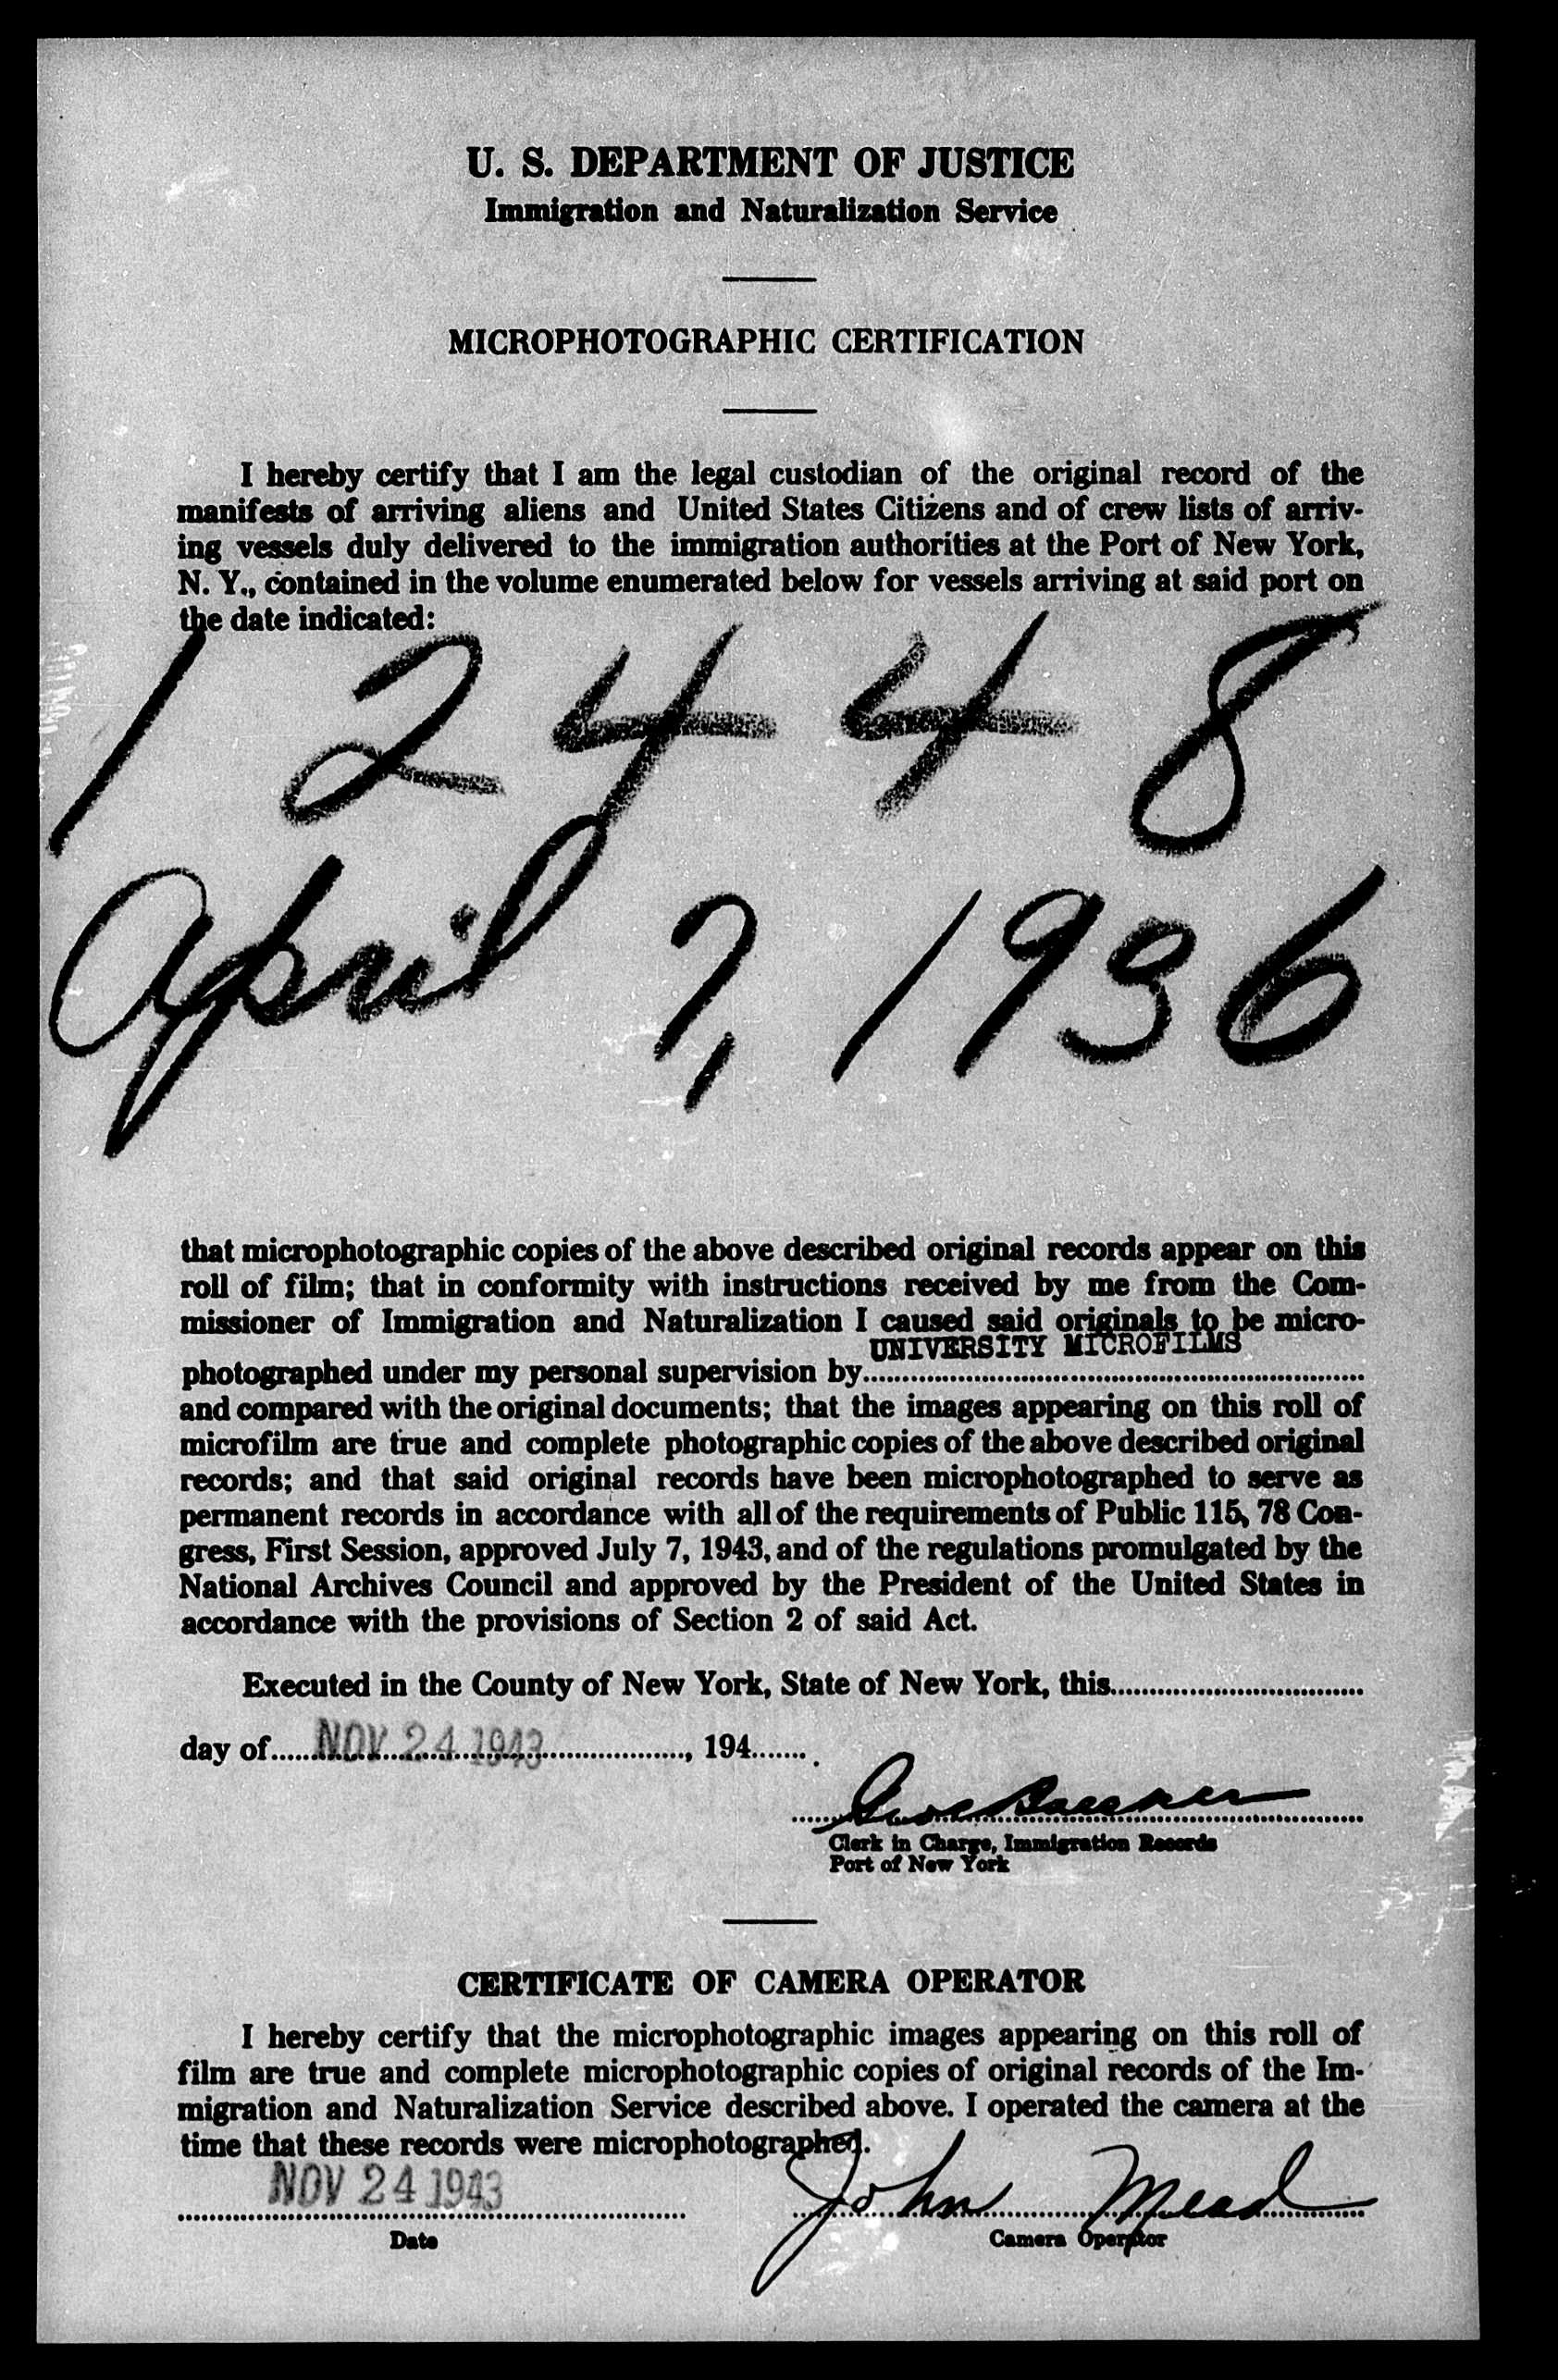 U. S. DEPARTMENT OF JUSTICE
Immigration and Naturalization Service
MICROPHOTOGRAPHIC CERTIFICATION
I hereby certify that I am the legal custodian of the original record of the
manifests of arriving aliens and United States Citizens and of crew lists of arriv-
ing vessels duly delivered to the immigration authorities at the Port of New York,
N. Y., contained in the volume enumerated below for vessels arriving at said port on
the date indicated:
1 2 4 4 8
April 7, 1936
that microphotographic copies of the above described original records appear on this
roll of film; that in conformity with instructions received by me from the Com-
missioner of Immigration and Naturalization I caused said originals to be micro-
UNIVERSITY MICROFILMS
photographed under my personal supervision by
and compared with the original documents; that the images appearing on this roll of
microfilm are true and complete photographic copies of the above described original
records; and that said original records have been microphotographed to serve as
permanent records in accordance with all of the requirements of Public 115, 78 Con-
gress, First Session, approved July 7, 1943, and of the regulations promulgated by the
National Archives Council and approved by the President of the United States in
accordance with the provisions of Section 2 of said Act.
Executed in the County of New York, State of New York, this
day of NOV 24 1943, 194.
Clerk in Charge, Immigration Records
Port of New York
CERTIFICATE OF CAMERA OPERATOR
I hereby certify that the microphotographic images appearing on this roll of
film are true and complete microphotographic copies of original records of the Im-
migration and Naturalization Service described above. I operated the camera at the
time that these records were microphotographed.
NOV 24 1943 John Mead
Date Camera Operator